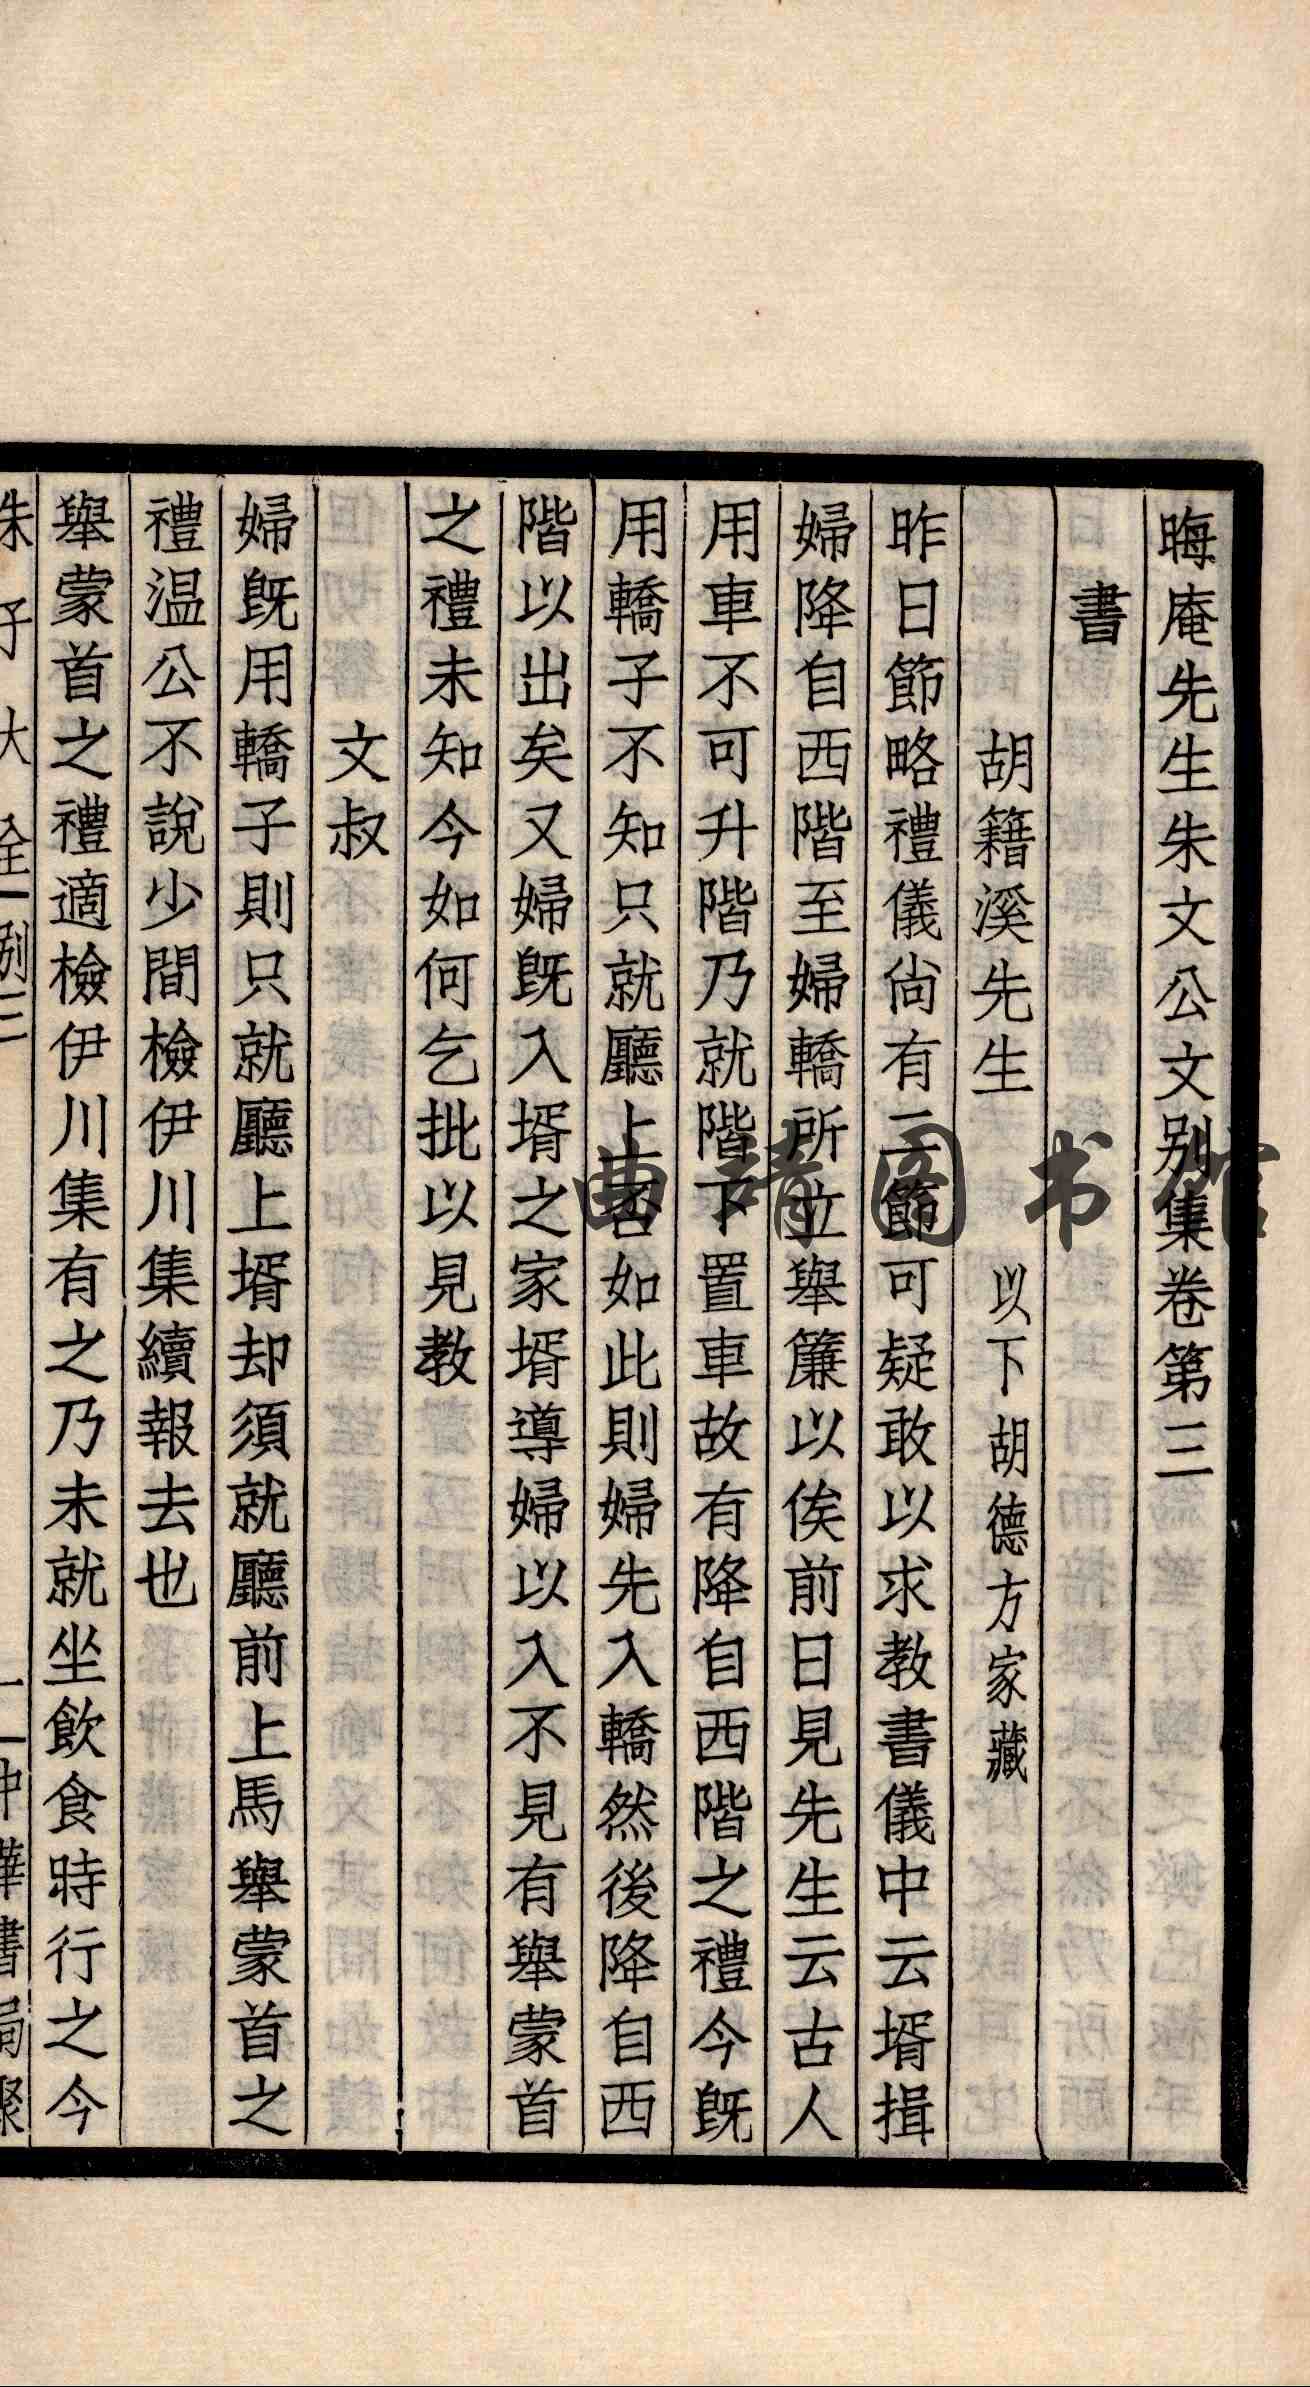 晦庵先生朱文公文别集卷第三
書
胡籍溪先生 以下胡德方家藏
昨日節略禮儀尙有二節可疑敢以求教書儀中云壻揖
婦降自西階至婦轎所立舉簾以俟前日見先生云古人
用車不可升階乃就階下置車故有降自西階之禮今旣
用轎子不知只就廳上否如此則婦先入轎然後降自西
階以出矣又婦旣入壻之家壻導婦以入不見有舉蒙首
之禮未知今如何乞批以見教
文叔
婦旣用轎子則只就廳上壻却須就廳前上馬舉蒙首之
禮温公不說少間檢伊川集續報去也
舉蒙首之禮適檢伊川集有之乃未就坐飲食時行之今
朱子大全 别三 一 中華書局聚
曲靖图书馆